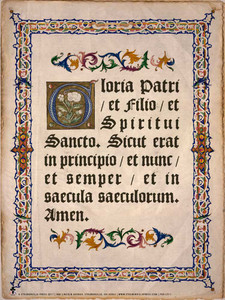 Gloria Patri
/ et Filio / et
Spiritui
Sancto. Sicut erat
in principio / et nunc /
et semper / et in
saecula saeculorum.
Amen.